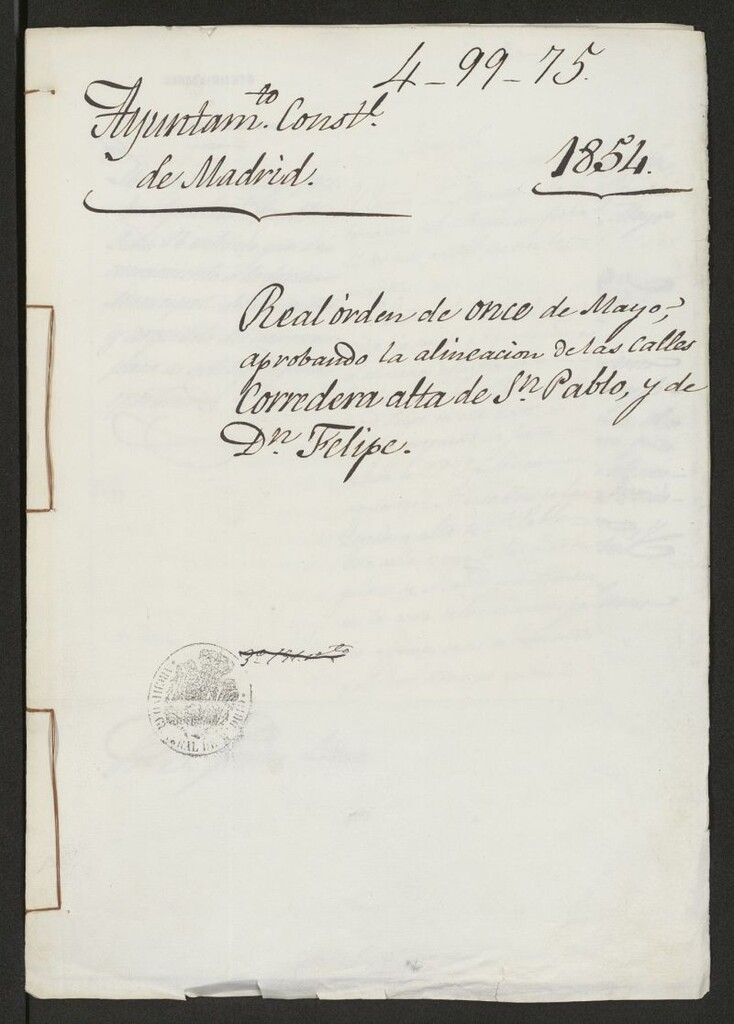 4-99-75.
Ayuntam.to Const.l
de Madrid.
1854.
Real órden de once de Mayo,
aprobando la alineacion de las calles
Corredera alta de S.n Pablo, y de
D.n Felipe.